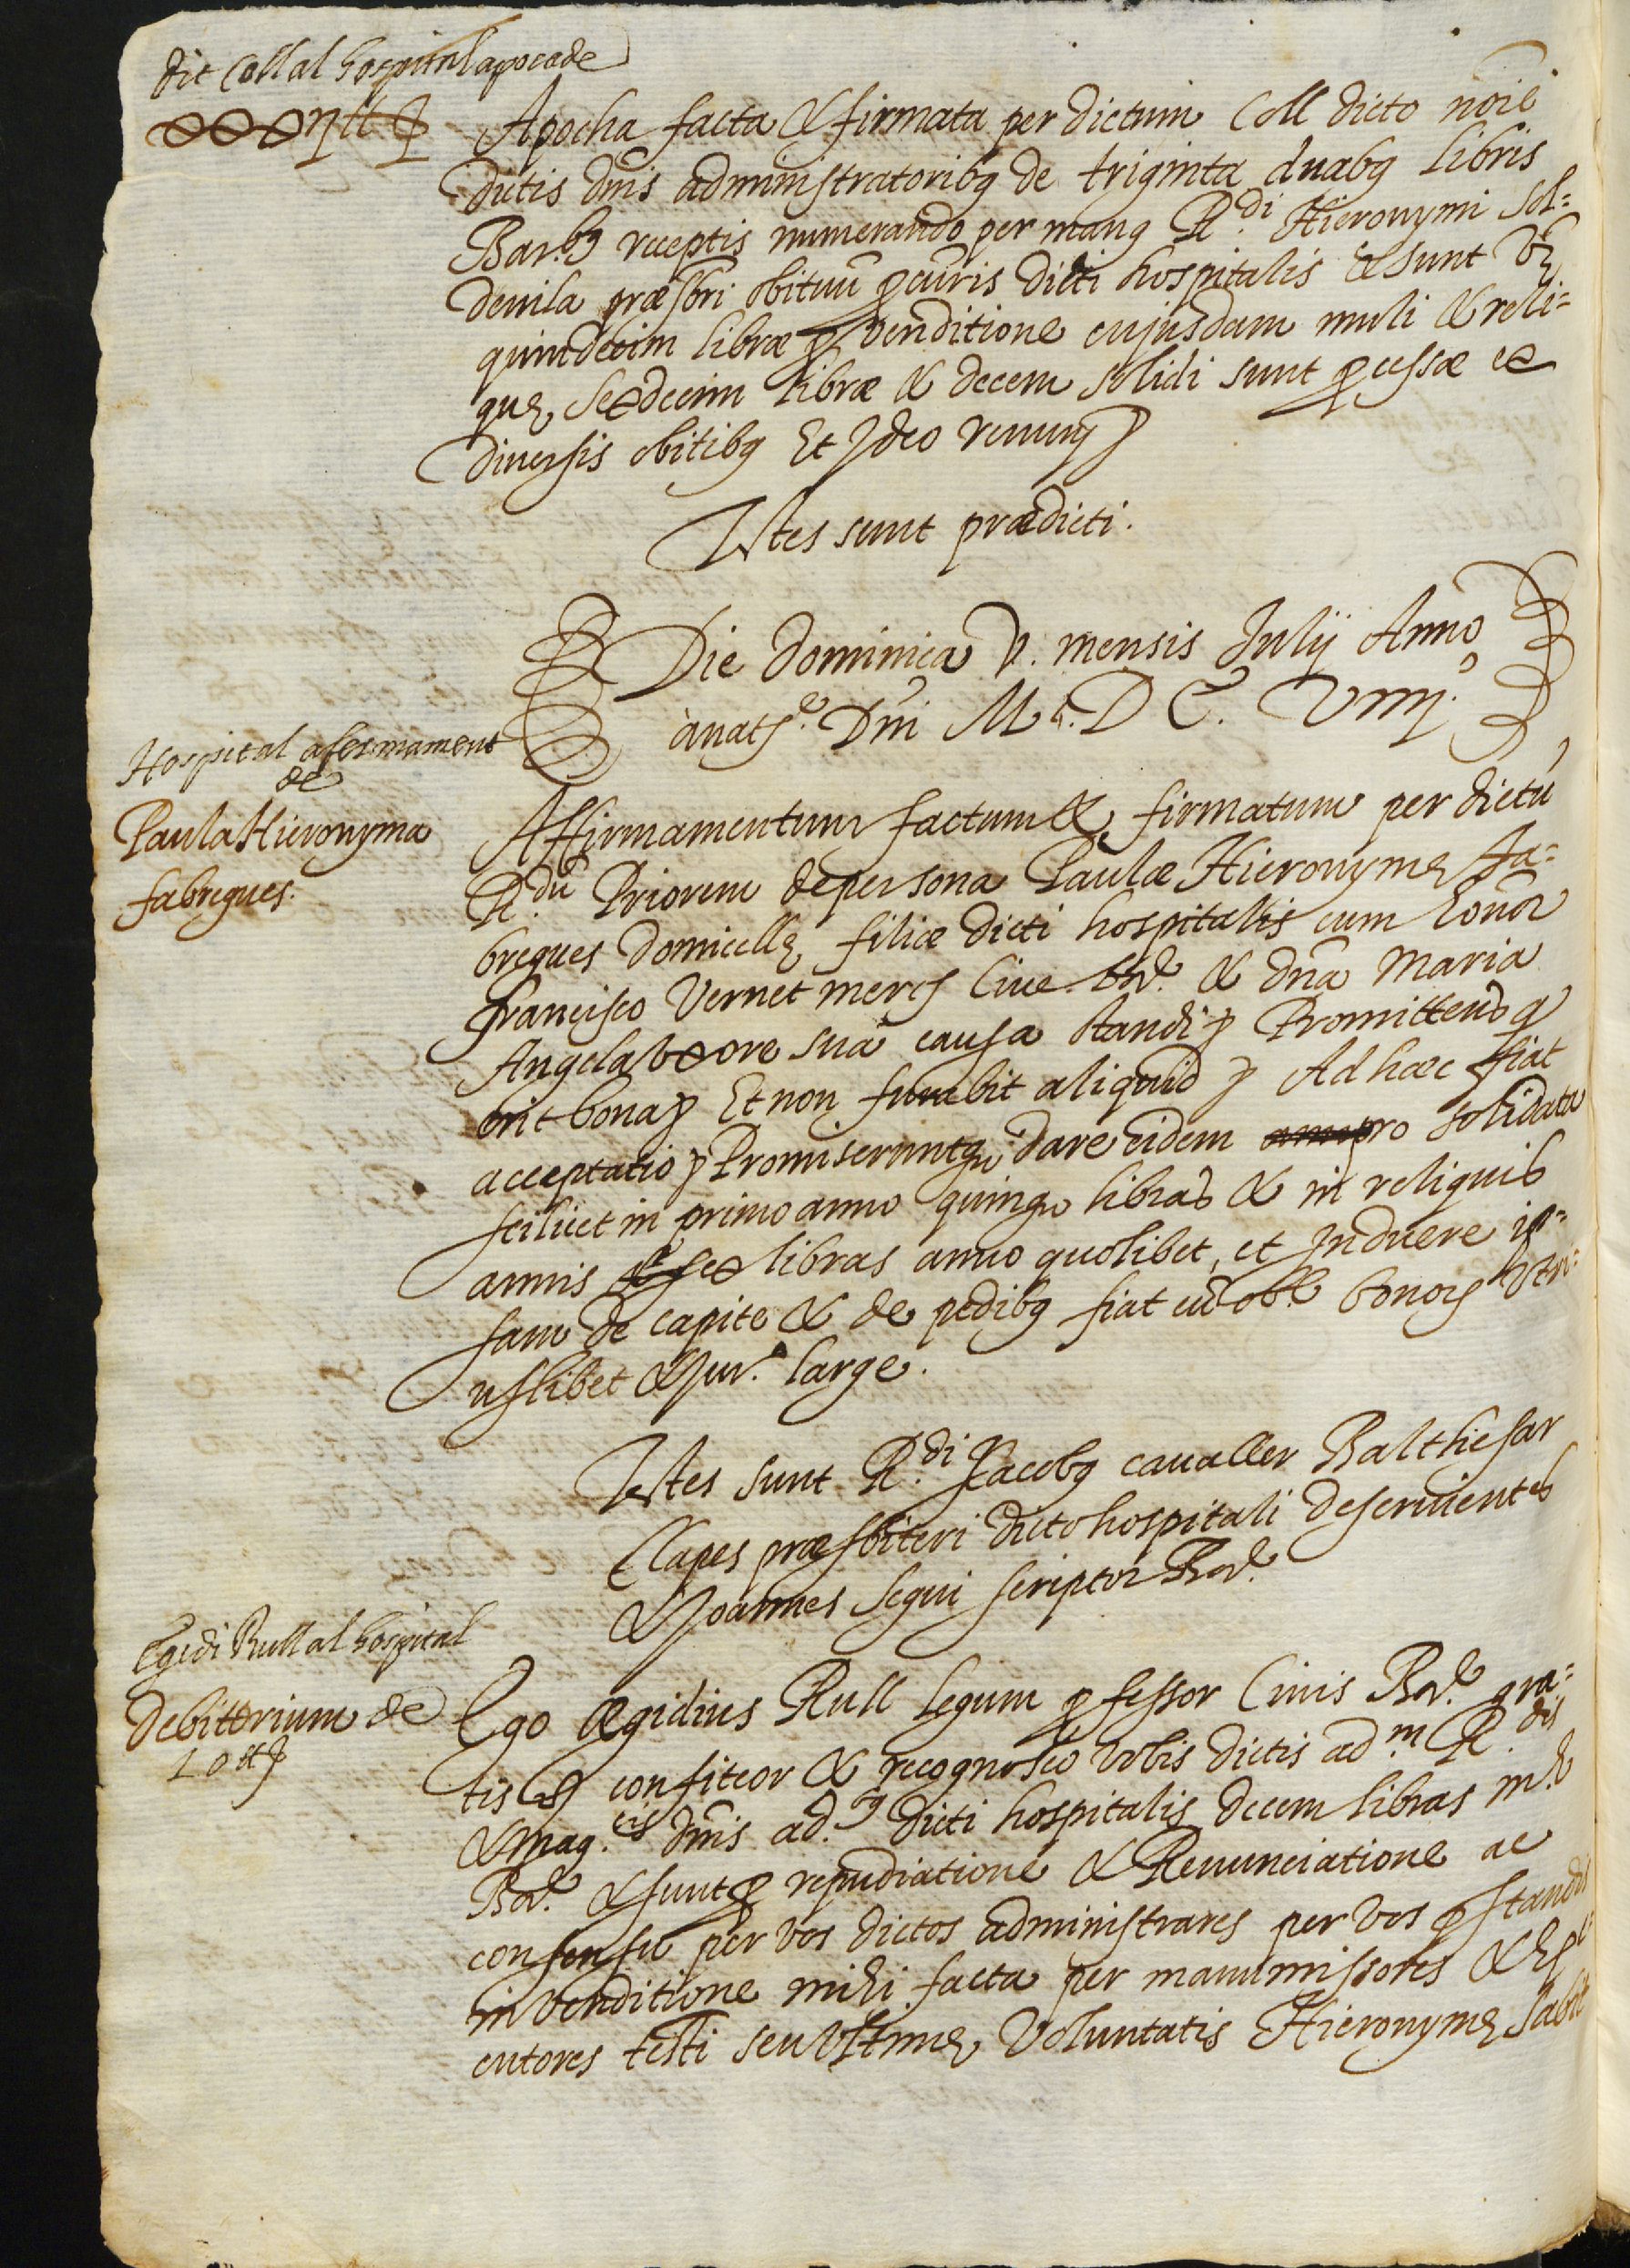 dit Coll al hospital apoca de
xxxij ll
Apocha facta & firmata per dictum Coll dicto noīe
dictis dnīs administratoribq de triginta duabq libris
Bar.bq receptis numerando per manq R.di Hieronymi Sol=
devila præsbri obituū pcuris dicti hospitalis & sunt
quindecim libræ p venditione cujusdam muli & reli=
quę sexdecim libræ & decem solidi sunt pcessæ ex
diversis obitibq Et Ideo renunç
Testes sunt prædicti.
Die dominica V. mensis Julij Anno
anatᵉ. Dnī M. D C. Viiij.
Hospital afermament
de
Paula Hieronyma
fabregues.
Affirmamentum factum & firmatum per dictū
R.dū Priorem de persona Paulæ Hieronymę Fa=
bregues domicellę filiæ dicti hospitalis cum honor
Francisco Vernet merc cive Bar. & dna Maria
Angela vxore sua causa standi Promittens q
erit bona Et non furabit aliquid Ad hæc fiat
acceptatio Promiseruntq dare eidem pro solidata
scilicet in primo anno quinq libras & in reliquis
annis sex libras anno quolibet, et Induere ip=
sam de capite & de pedibq fiat cū obl. bonor vtri=
uslibet & Jur. large.
Testes sunt R.di Jacobq cavaller Balthesar
Clapes præsbiteri dicto hospitali deservientes
& Joannes Segui scriptor Bar.
Egidi Rull al hospital
Debitorium de
10 ll
Ego Ægidius Rull legum pfessor Civis Bar. gra=
tis confiteor & recognosco vobis dictis ad.m R.dis
& mag.cis dnīs ad. dicti hospitalis decem libras
Bar. & sunt p repudiatione & Renunciatione ac
consensu per vos dictos administrares per vos pstandis
in venditione mihi facta per manumissores &
cutores testi seu vltimę voluntatis Hieronymę